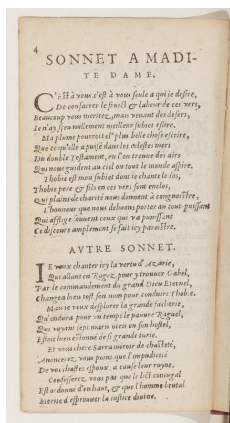 4
SONNET A MADI-
TE DAME.
C'EST à vous, c'est à vous seule a qui je desire,
De consacrer le fruict & labeur de ces vers,
Beaucoup vous meritez, mais venant des desers,
Ie n'ay sceu nullement meilleur subiect eslire.
Ma plume pourroit el' plus belle chose escrire,
Que ce qu'elle a puisé dans les celestes mers
Du double Testament, ou l'on trouve des airs
Qui nous guident au ciel ou tout le monde aspire.
Thobie est mon subiet dont ie chante le los,
Thobie pere & fils en ces vers sont enclos,
Qui plains de charité nous donnent à congnoistre,
L'honneur que nous debuons porter au tout-puissant
Qui afflige souuent ceux qui va punissant
Ce discours amplement se fait icy paroistre.
AVTRE SONNET.
IE veux chanter icy la vertu d'Azarie,
Qui allant en Ragez, pour y trouuer Gabel,
Par le commandement du grand Dieu Eternel,
Changea bien tost son nom pour conduire Thobie.
Mau ie veux desplorer la grande fascherie,
Qu'endura pour vn temps le pauure Raguel,
Qui voyant sept maris occis en son hostel,
Estoit bien estonné de si grande turie.
Et vous chere Sarra miroir de chasteté,
Anoncerez vous point que l'impudicité
De vos chastes espoux, a cause leur ruyne,
Confesserez vous pas que le lict coniugal
Est ordonné d'en haut, & que l'homme brutal
Merite d'esprouver la iustice diuine.